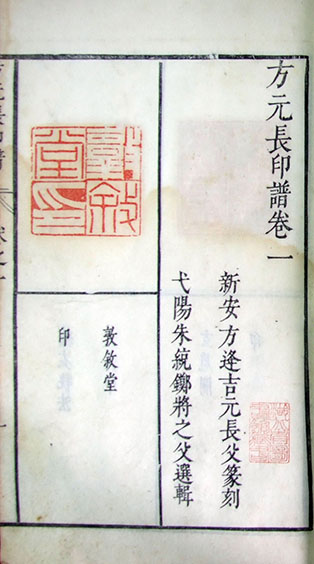 方元長印譜卷一
新安方逢吉元長父篆刻
弋陽朱統將之父選輯
敦敘堂印
敦敘堂
印
方元長印譜 卷之一